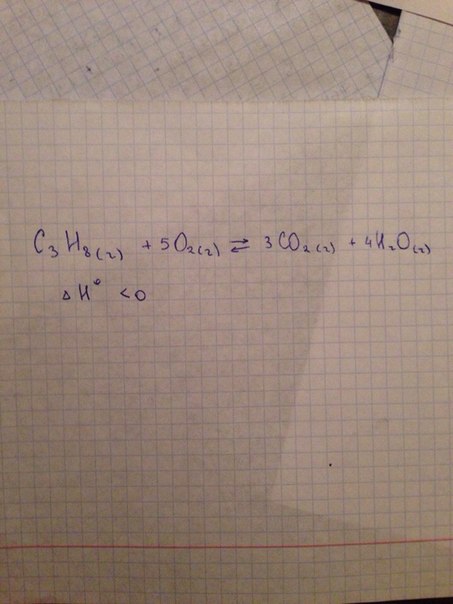 C₃H₈(г) + 5O₂(г) ⇄ 3CO₂(г) + 4H₂O(г)
ΔH° < 0